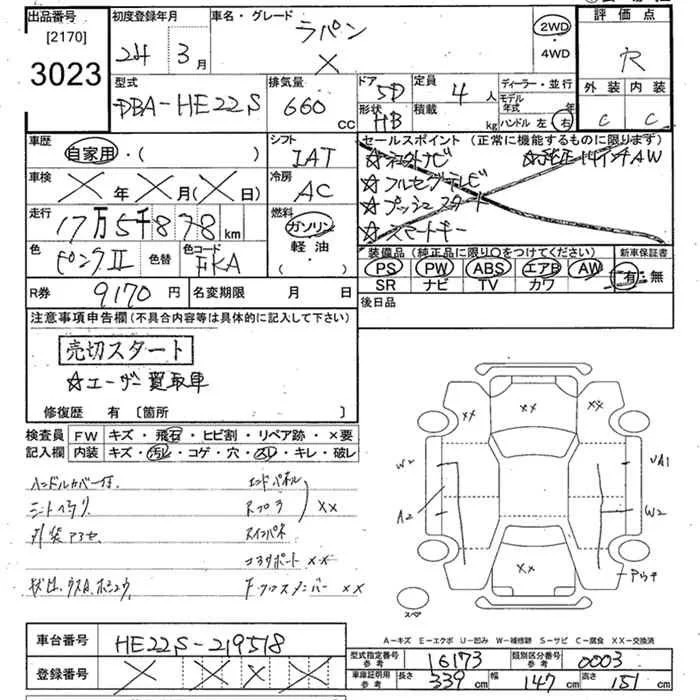 出品番号 初度登録年月 車名・グレード 評価点
[2170]
3023
24 3月 ラパン X 2WD
・4WD
穴
型式 排気量 ドア 定員 ディーラー・並行 外装 内装
DBA-HE22S 660cc 5D 4人 モデル年式 年
形状 HB 積載 kg ハンドル 左 右 C C
車歴 シフト セールスポイント(正常に機能するものに限ります)
自家用・( ) IAT
☆純正14インチAW
☆フルセグテレビ
☆プッシュスタート
☆スマートキー
車検 X年X月(X日) 冷房 AC
走行 17万5千878km 燃料 ガソリン
軽油
・( )・
色 ピンクII 色替 色コード FKA
装備品(純正品に限り○をつけてください) 新車保証書
PS PW ABS エアB AW 有・無
SR ナビ TV カワ
R券 9170円 名変期限 月 日 後日品
注意事項申告欄(不具合内容等は具体的に記入して下さい)
売切スタート
☆ユーザー買取車
修復歴 有 〔箇所 〕
検査員 FW キズ・飛石・ヒビ割・リペア跡・×要
記入欄 内装 キズ・汚レ・コゲ・穴・スレ・キレ・破レ
ハンドルカバー付. エンドパネル
××
外装
コアサポート ××
F・クロスメンバー ××
×× ×× ××
W2 A2 UA1 W2
××
スペア
A-キズ E-エクボ U-凹み W-補修跡 S-サビ C-腐食 XX-交換済
車台番号 HE22S-219518
登録番号 X X X X
型式指定番号 参考 16173 類別区分番号 参考 0003
車庫証明用 参考 長さ 339cm 幅 147cm 高さ 151cm